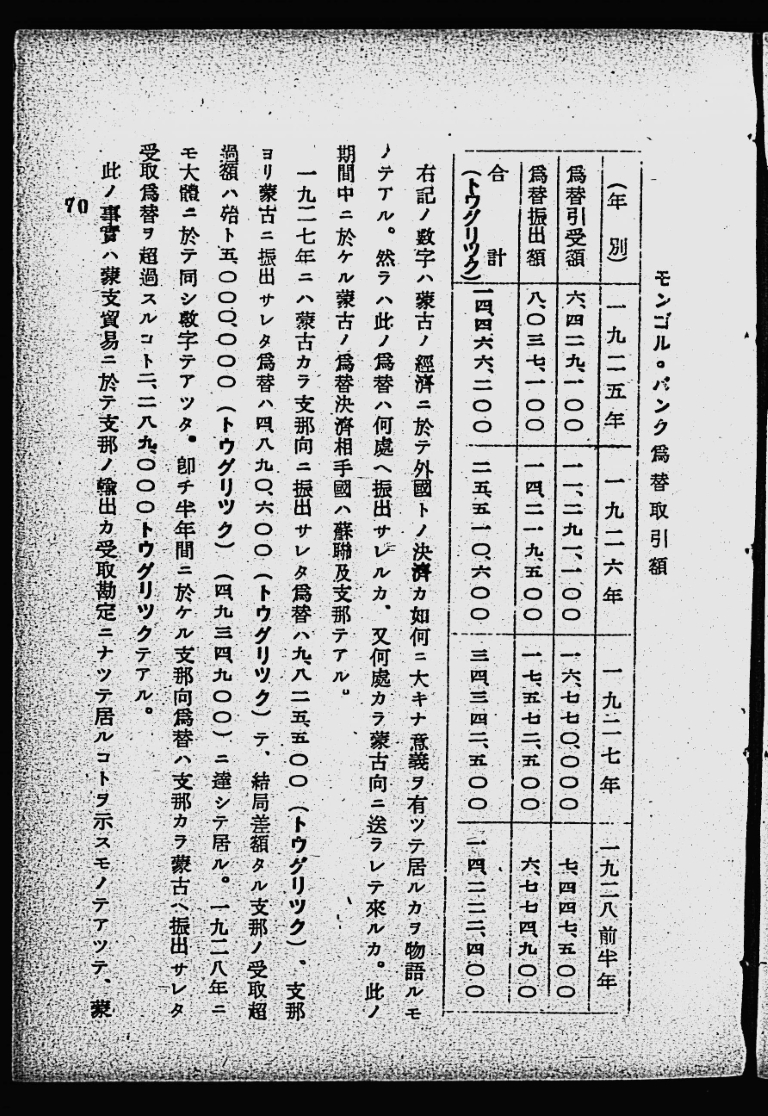 モンゴル。バンク爲替取引額
(年別) 一九二五年 一九二六年 一九二七年 一九二八前半年
爲替引受額 六、四二九、一〇〇 一一、二九一、一〇〇 一六、七七〇、〇〇〇 七、四四七、五〇〇
爲替振出額 八、〇三七、一〇〇 一四、二一九、五〇〇 一七、五七二、五〇〇 六、七七四、九〇〇
合計(トウグリツク) 一四、四六六、二〇〇 二五、五一〇、六〇〇 三四、三四二、五〇〇 一四、二二二、四〇〇
右記ノ數字ハ蒙古ノ經濟ニ於テ外國トノ決濟カ如何ニ大キナ意義ヲ有ツテ居ルカヲ物語ルモ
ノテアル。然ラハ此ノ爲替ハ何處ヘ振出サレルカ、又何處カラ蒙古向ニ送ラレテ來ルカ。此ノ
期間中ニ於ケル蒙古ノ爲替決濟相手國ハ蘇聯及支那テアル。
一九二七年ニハ蒙古カラ支那向ニ振出サレタ爲替ハ九、八二五、五〇〇(トウグリツク)、支那
ヨリ蒙古ニ振出サレタ爲替ハ四、八九〇、六〇〇(トウグリツク)テ、結局差額タル支那ノ受取超
過額ハ殆ト五、〇〇〇、〇〇〇(トウグリツク)(四、九三四、九〇〇)ニ達シテ居ル。一九二八年ニ
モ大體ニ於テ同シ數字テアツタ。卽チ半年間ニ於ケル支那向爲替ハ支那カラ蒙古ヘ振出サレタ
受取爲替ヲ超過スルコト二、二八九、〇〇〇トウグリツクテアル。
此ノ事實ハ蒙支貿易ニ於テ支那ノ輸出カ受取勘定ニナツテ居ルコトヲ示スモノテアツテ、蒙
70